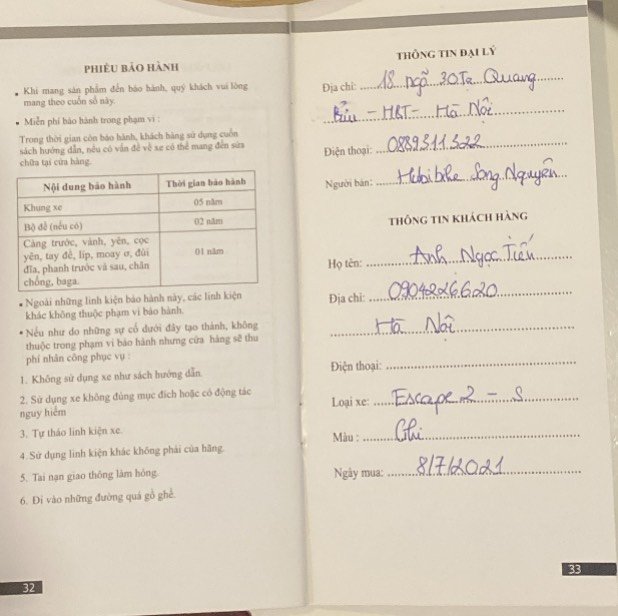 PHIẾU BẢO HÀNH
Khi mang sản phẩm đến bảo hành, quý khách vui lòng
mang theo cuốn sổ này.
Miễn phí bảo hành trong phạm vi :
Trong thời gian còn bảo hành, khách hàng sử dụng cuốn
sách hướng dẫn, nếu có vấn đề về xe có thể mang đến sửa
chữa tại cửa hàng.
Nội dung bảo hành Thời gian bảo hành
Khung xe 05 năm
Bộ đề (nếu có) 02 năm
Càng trước, vành, yên, cọc
yên, tay đề, líp, moay ơ, đùi
đĩa, phanh trước và sau, chân
chống, baga. 01 năm
Ngoài những linh kiện bảo hành này, các linh kiện
khác không thuộc phạm vi bảo hành.
Nếu như do những sự cố dưới đây tạo thành, không
thuộc trong phạm vi bảo hành nhưng cửa hàng sẽ thu
phí nhân công phục vụ :
1. Không sử dụng xe như sách hướng dẫn.
2. Sử dụng xe không đúng mục đích hoặc có động tác
nguy hiểm
3. Tự tháo linh kiện xe.
4. Sử dụng linh kiện khác không phải của hãng.
5. Tai nạn giao thông làm hỏng.
6. Đi vào những đường quá gồ ghề.
32
THÔNG TIN ĐẠI LÝ
Địa chỉ: 18 ngõ 30 Tạ Quang
Bửu - HBT - Hà Nội
Điện thoại: 0889311322
Người bán: Song Nguyễn
THÔNG TIN KHÁCH HÀNG
Họ tên: Anh Ngọc Tiến
Địa chỉ: 0904226620
Hà Nội
Điện thoại:
Loại xe: Escape 2 - S
Màu : Ghi
Ngày mua: 8/7/2021
33